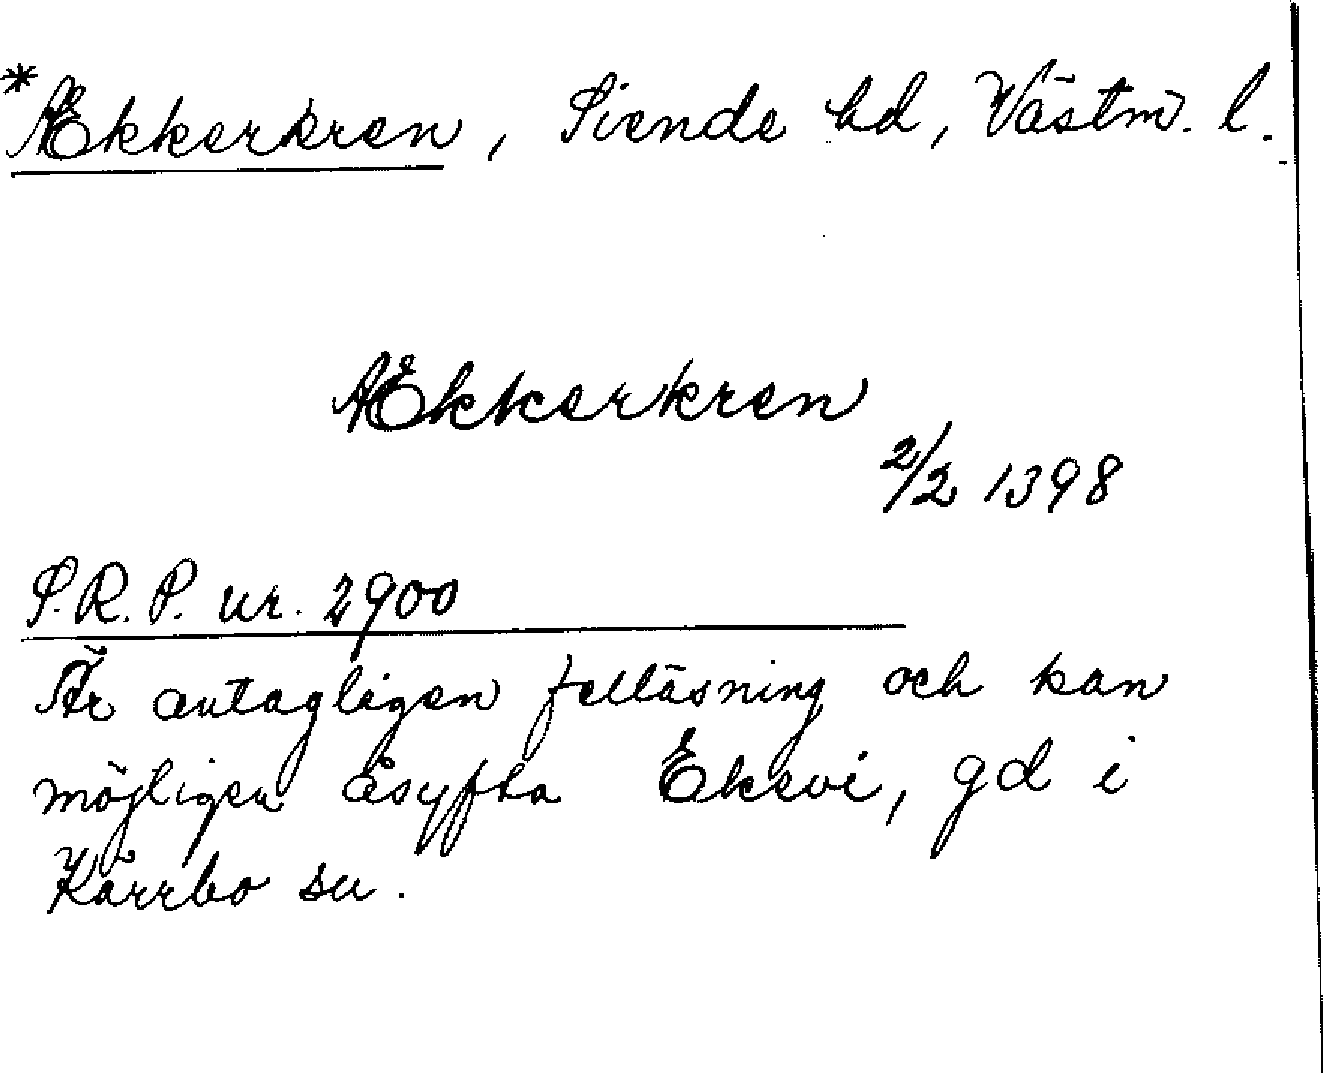 *Ækkerkren, Siende hd, Västm. l.
Ækkerkren
2/2 1398
S.R.P. nr. 2900
Är antagligen felläsning och kan
möjligen åsyfta Ekevi, gd i
Kärrbo sn.